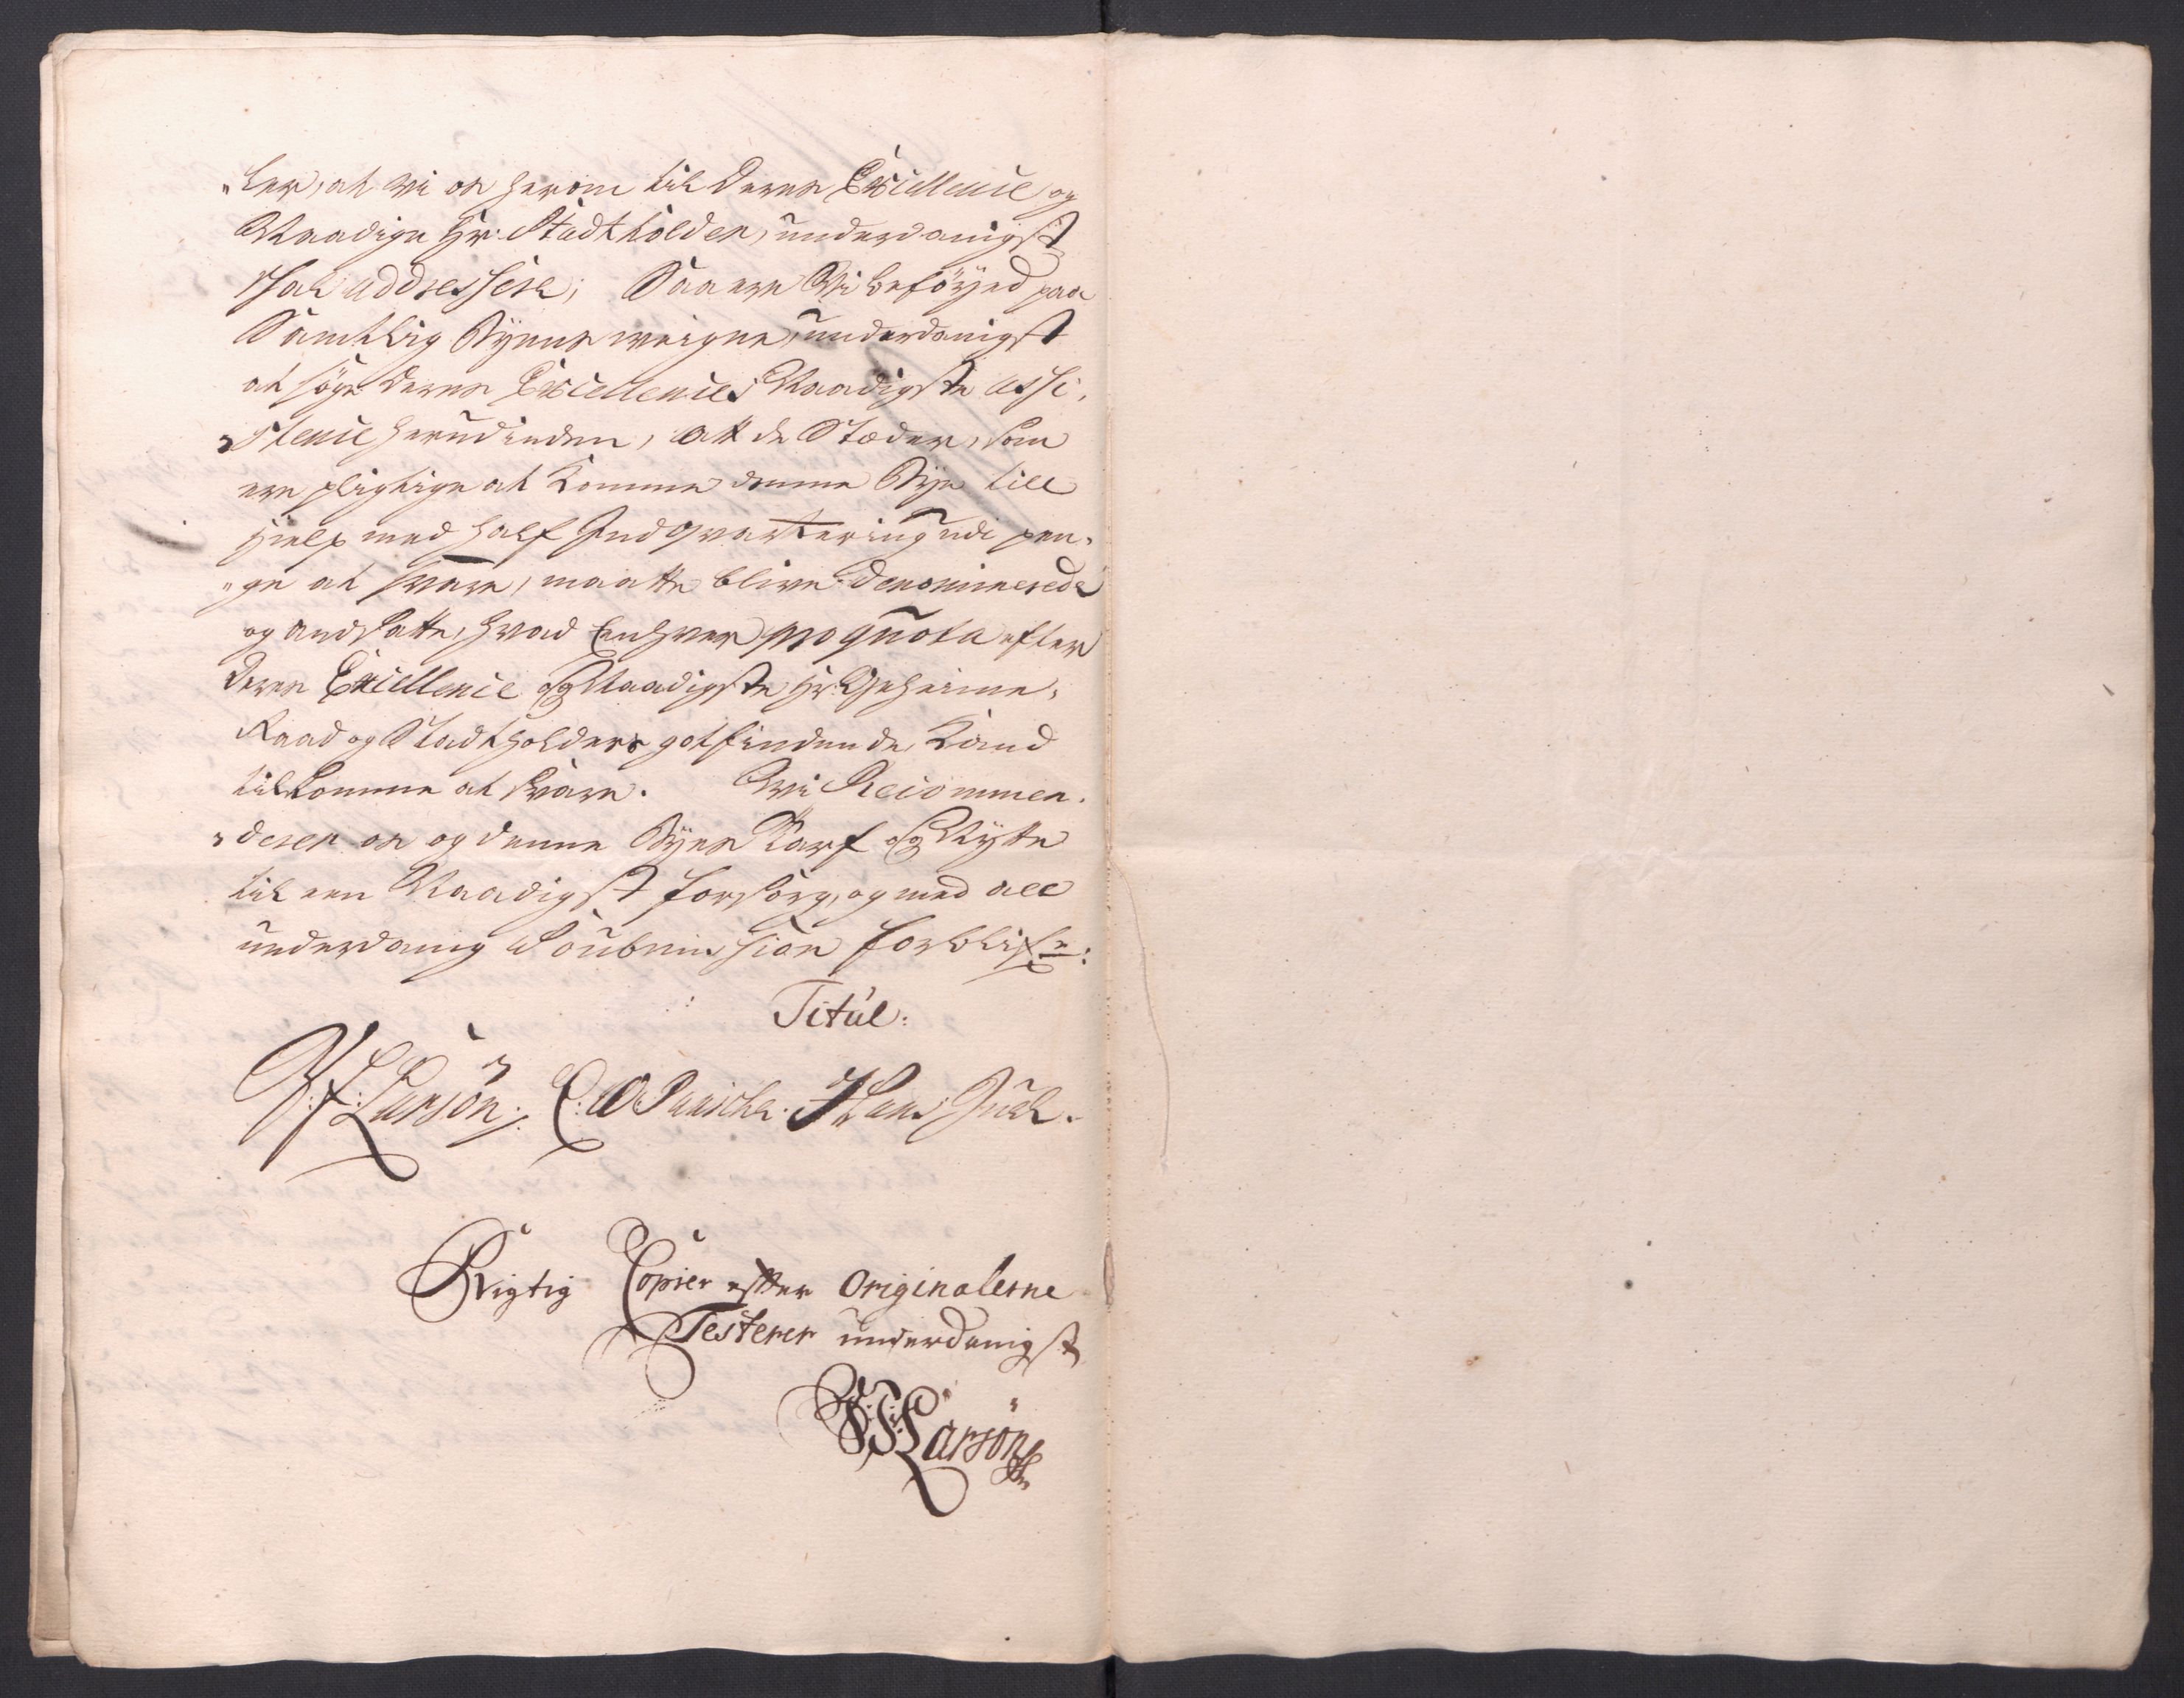 "ler, at vi os herom til Deres Excellence og
Naadige Hr: Stadtholder, underdanigst
skal addressere; Saa ere Vi beföyed paa
Samtlig Byens weigne, underdanigst
at söge Deres Excellences Naadigste assi,
"stence herudinden, att de Stæder, som
ere pligtige at komme denne Bye till
hielp med half Indqvartering udi pen,
"ge at svare, maatte blive denominerede
og andsatte, hvad Enhver pro quota efter
Deres Excellence og Naadigste Hr: Geheime,
Raad og Stadtholders gotfindende, kand
tilkomme at svare. Vi Recommen,
"derer os og denne Byes Tarf og Nytte
til een Naadigst forsorg, og med all
underdanig Soubmission forblifve:
Titul:
Larsön: Hans Juel.
Rigtig Copier efter Originalerne
Testerer underdanigst
Larsön